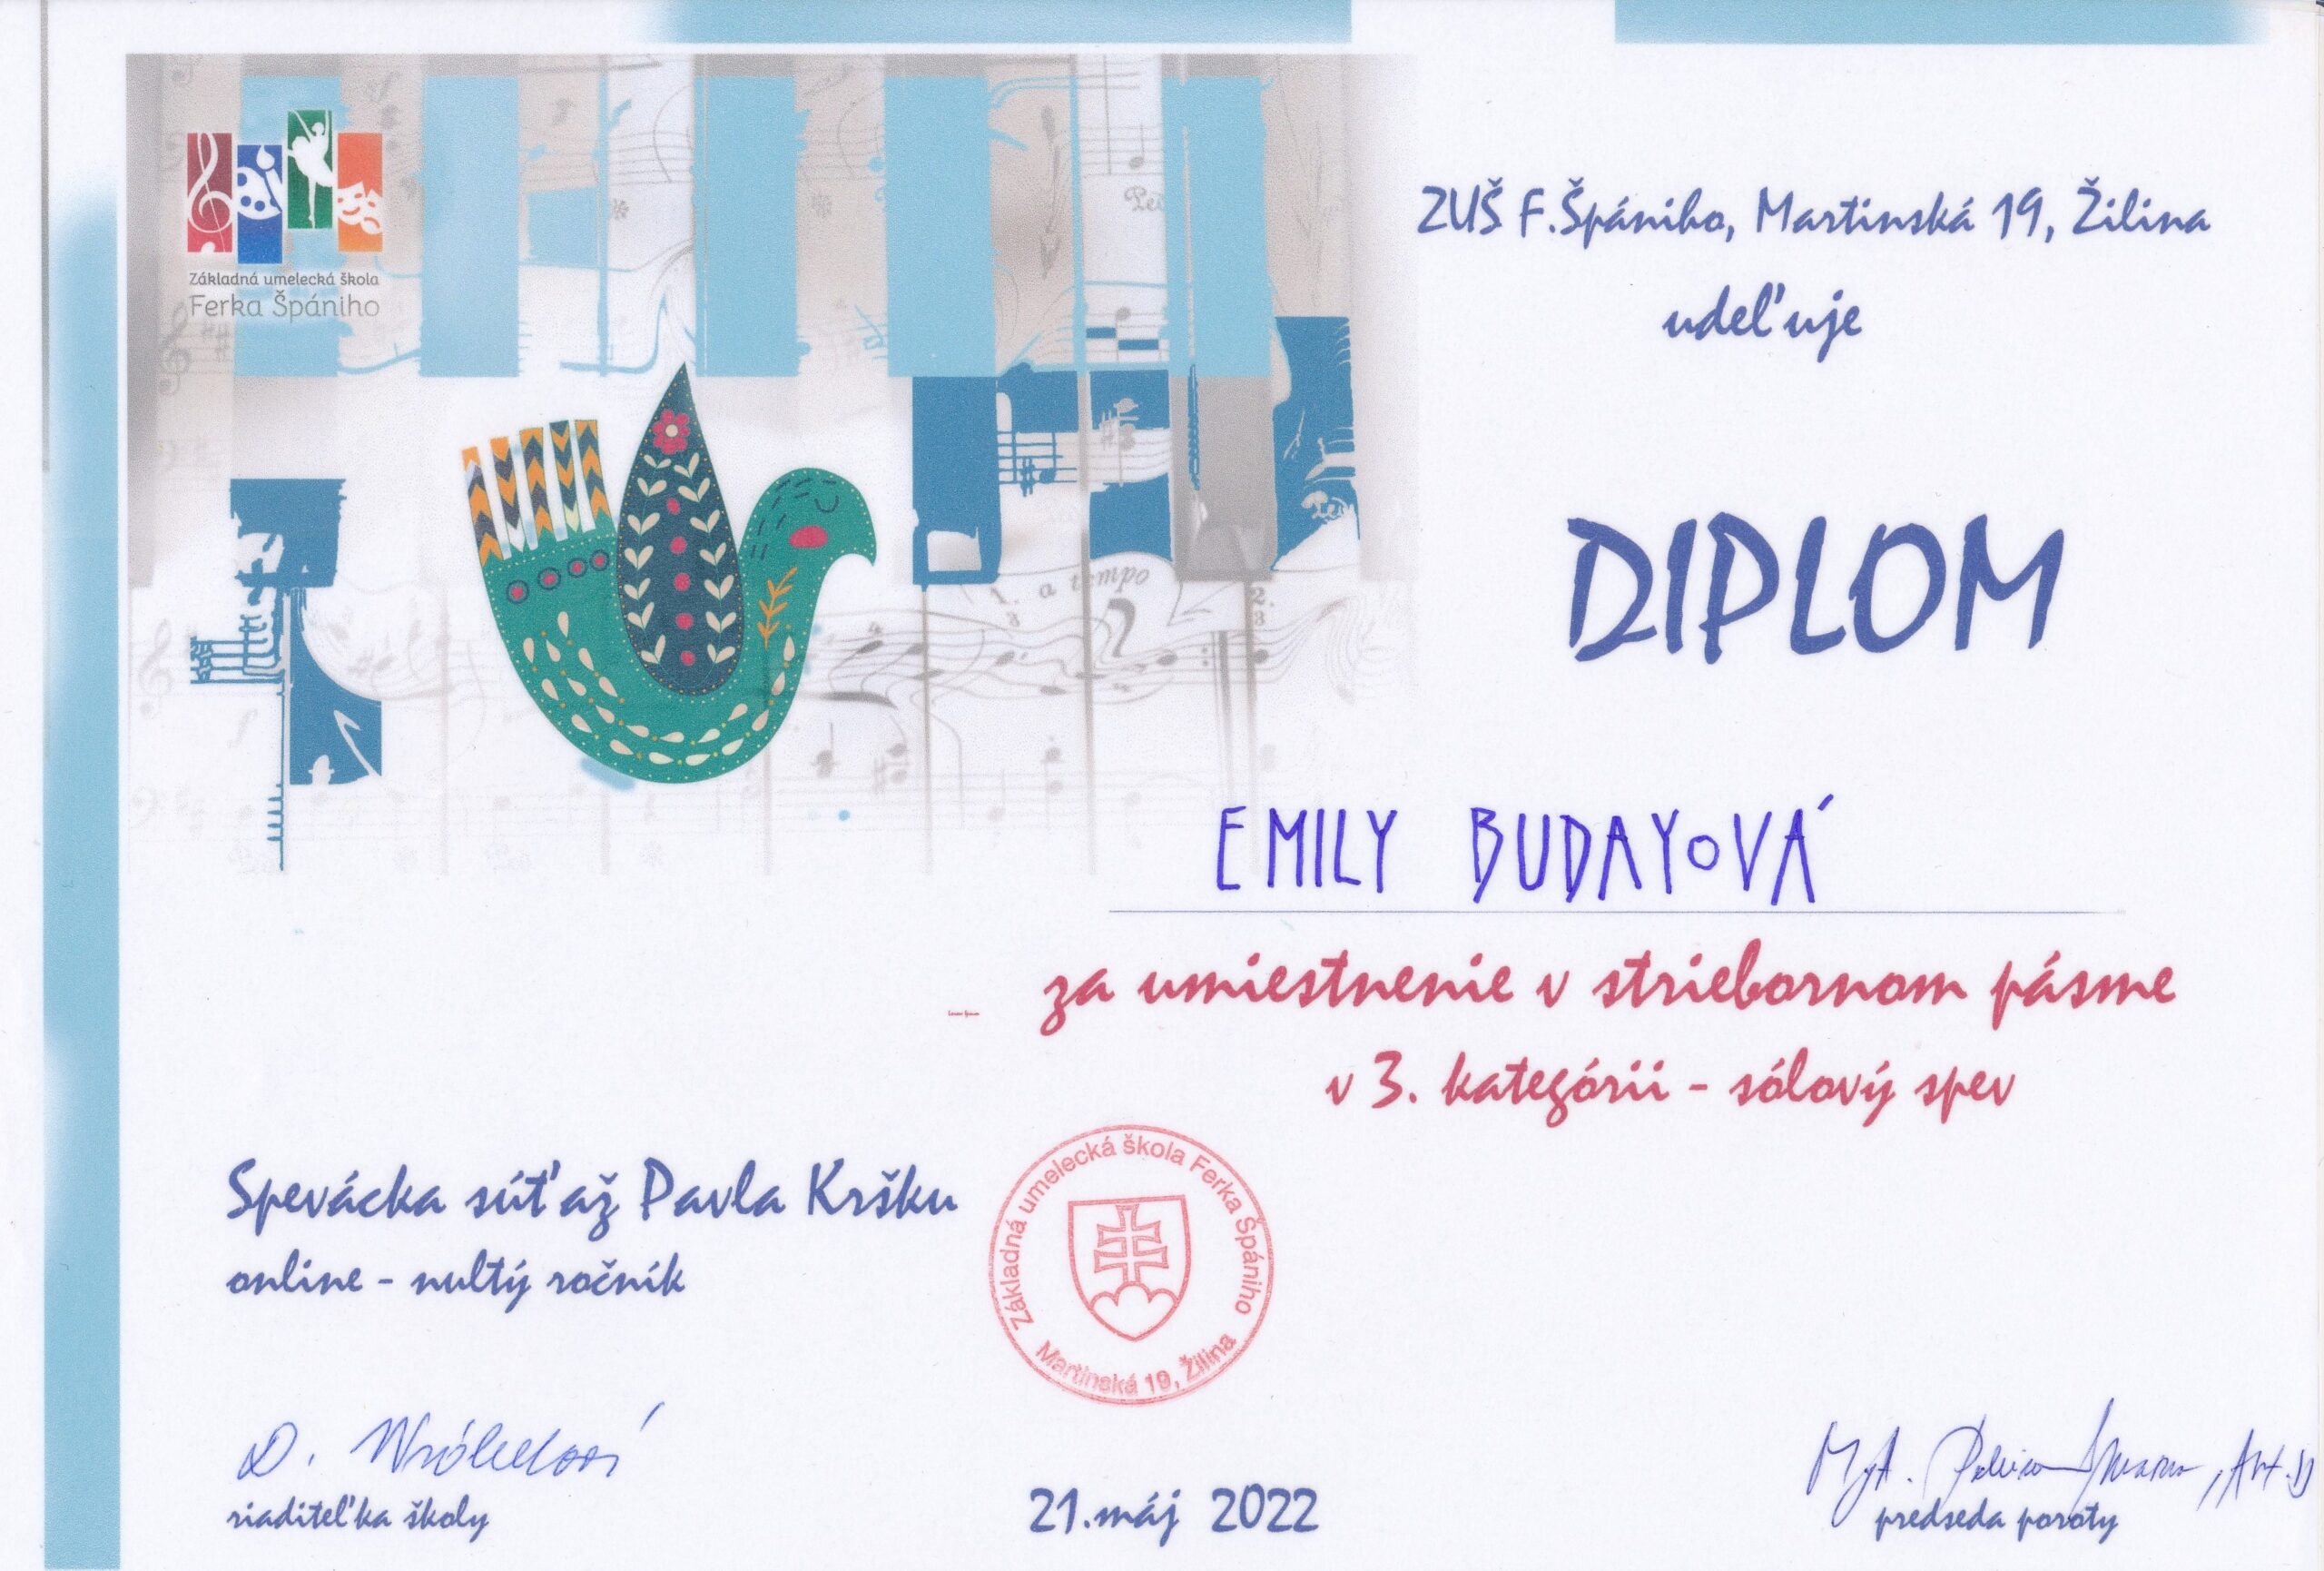 Základná umelecká škola
Ferka Špániho
ZUŠ F.Špániho, Martinská 19, Žilina
udeľuje
DIPLOM
EMILY BUDAYOVÁ
za umiestnenie v striebornom pásme
v 3. kategórii - sólový spev
Spevácka súťaž Pavla Kršku
online - nultý ročník
Základná umelecká škola Ferka Špániho
Martinská 19, Žilina
D.
riaditeľka školy
21.máj 2022
MgA.
predseda poroty
a tempo
1.
2.